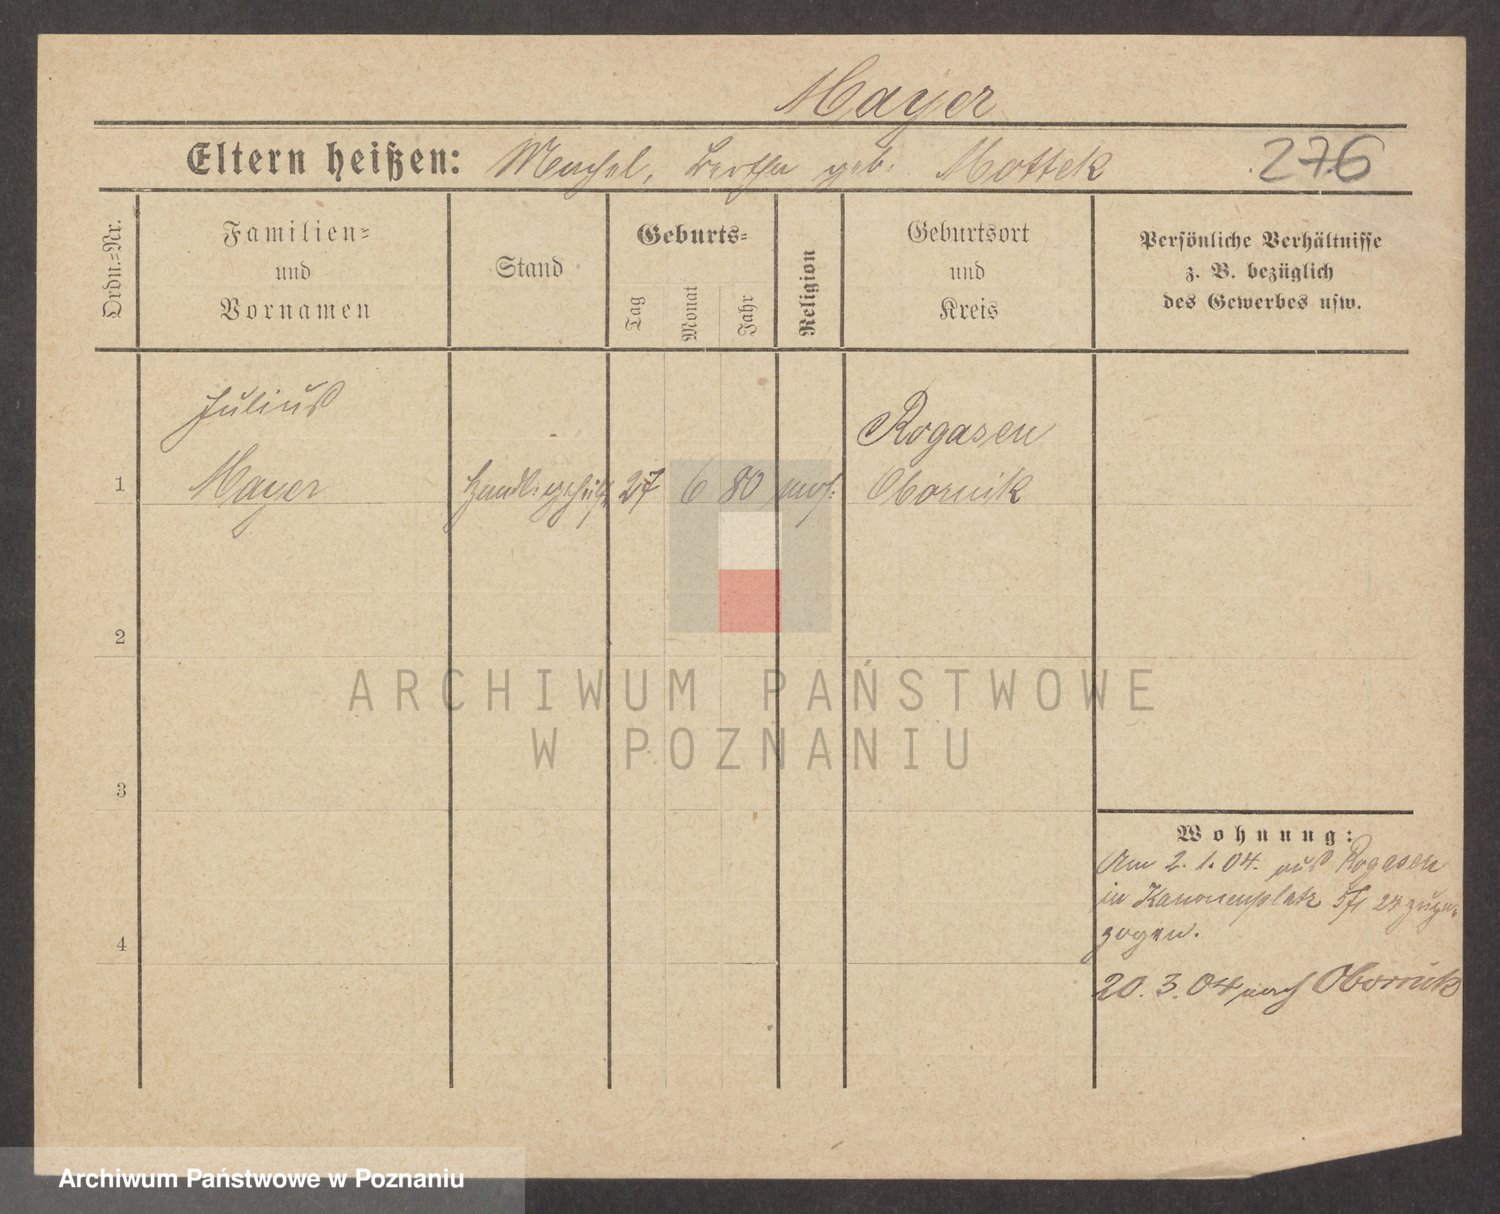 Mayer
Eltern heißen: Machol, Bertha geb. Mottek 276
Ordn.-Nr.
Familien-
und
Vornamen
Stand
Geburts-
Tag
Monat
Jahr
Religion
Geburtsort
und
Kreis
Persönliche Verhältnisse
z. B. bezüglich
des Gewerbes usw.
Julius
Rogasen
1 Mayer Handl. gehülfe 27 6 80 mos. Obornik
2
ARCHIWUM PAŃSTWOWE
W POZNANIU
3
Wohnung:
Am 2.1.04. aus Rogasen
in Kanonenplatz zuge-
4
zogen.
20.3.04 nach Obornik
Archiwum Państwowe w Poznaniu